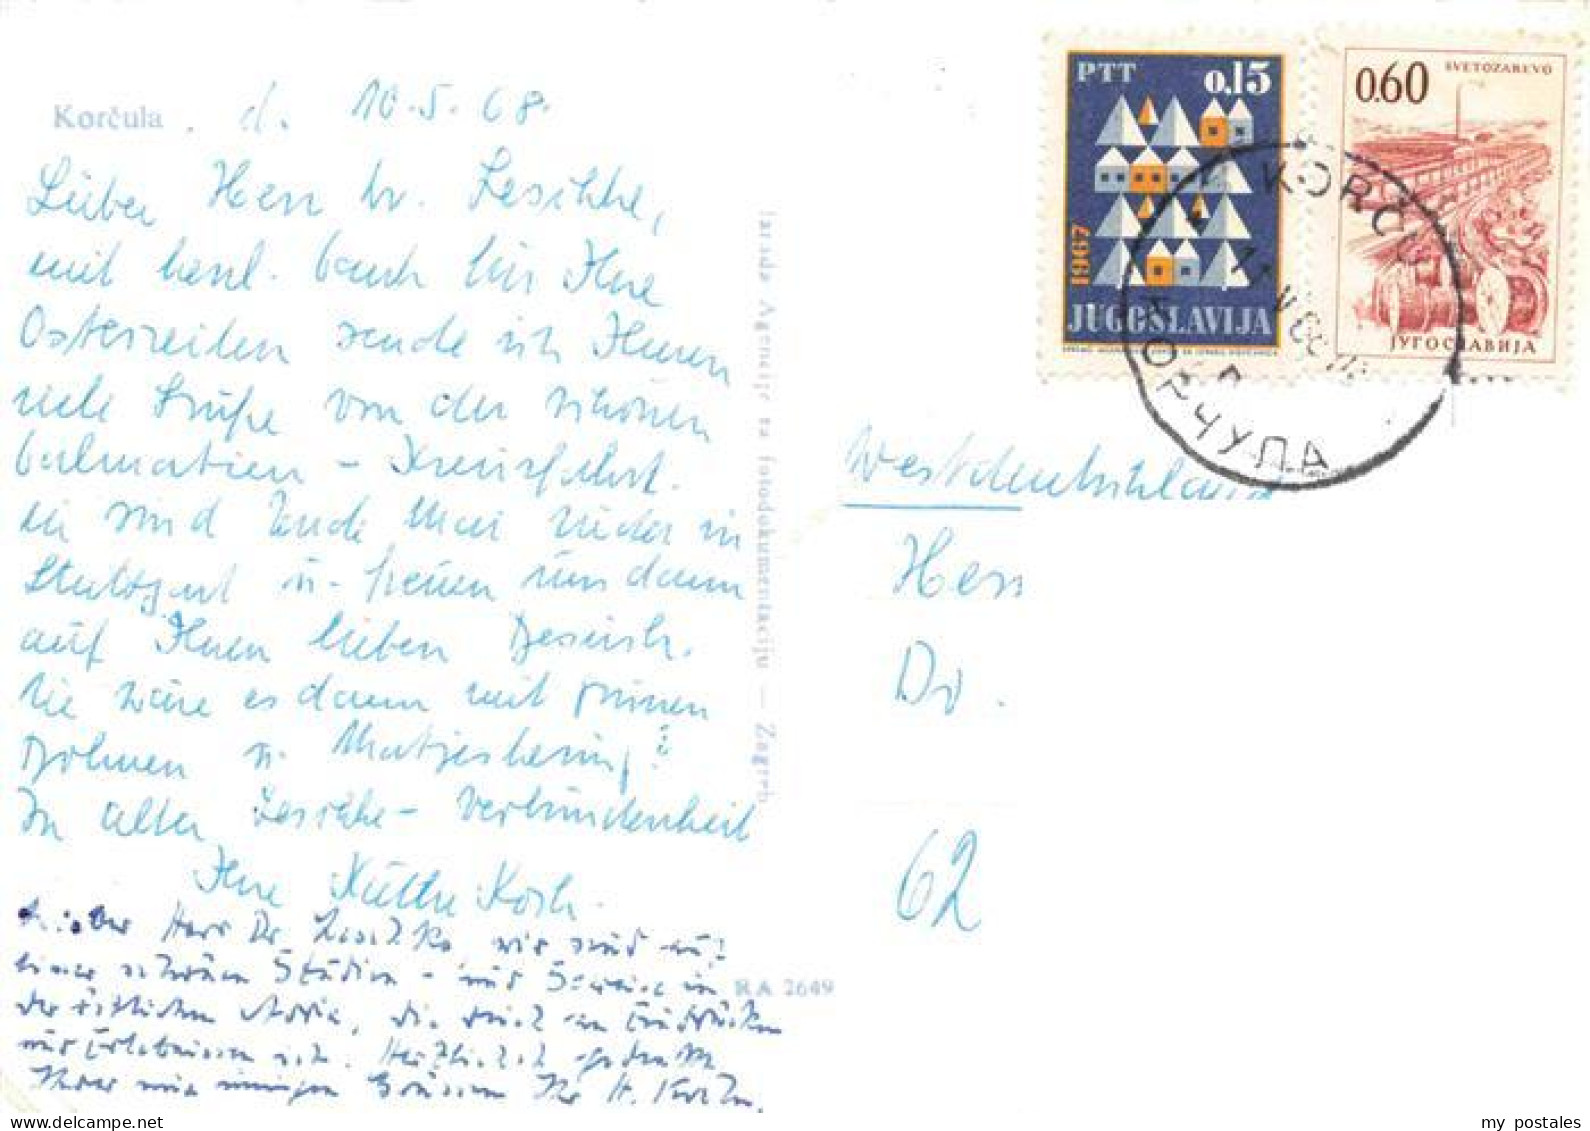 Korčula, d. 10.5.68.
Lieber Herr Dr. Leschke,
mit herzl. Dank für Ihre
Osterzeilen sende ich Ihnen
viele Grüße von der schönen
Dalmatien - Kreuzfahrt.
Wir sind Ende Mai wieder in
Stuttgart u. freuen uns dann
auf Ihren lieben Besuch.
Wie wäre es dann mit grünen
Bohnen u. Matjeshering?
In alter Leschke - Verbundenheit
Ihre Käthe Koch.
Lieber Herr Dr. wir sind auf
einer schönen Studien - und
der östlichen Adria, die reich an Eindrücken
und Erlebnissen ist. Herzlichst gedenkt
Ihrer mit innigen Grüssen Ihr H. Koch.
Izrada Agencije za fotodokumentaciju — Zagreb
RA 2649
PTT 0,15
1967
JUGOSLAVIJA
0.60 SVETOZAREVO
ЈУГОСЛАВИЈА
KORČULA
КОРЧУЛА
Westdeutschland
Herr
Dr.
62
my postales